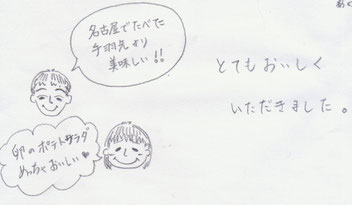 名古屋でたべた
手羽先より
美味しい!!
卵のポテトサラダ
めっちゃおいしい♥
とてもおいしく
いただきました。